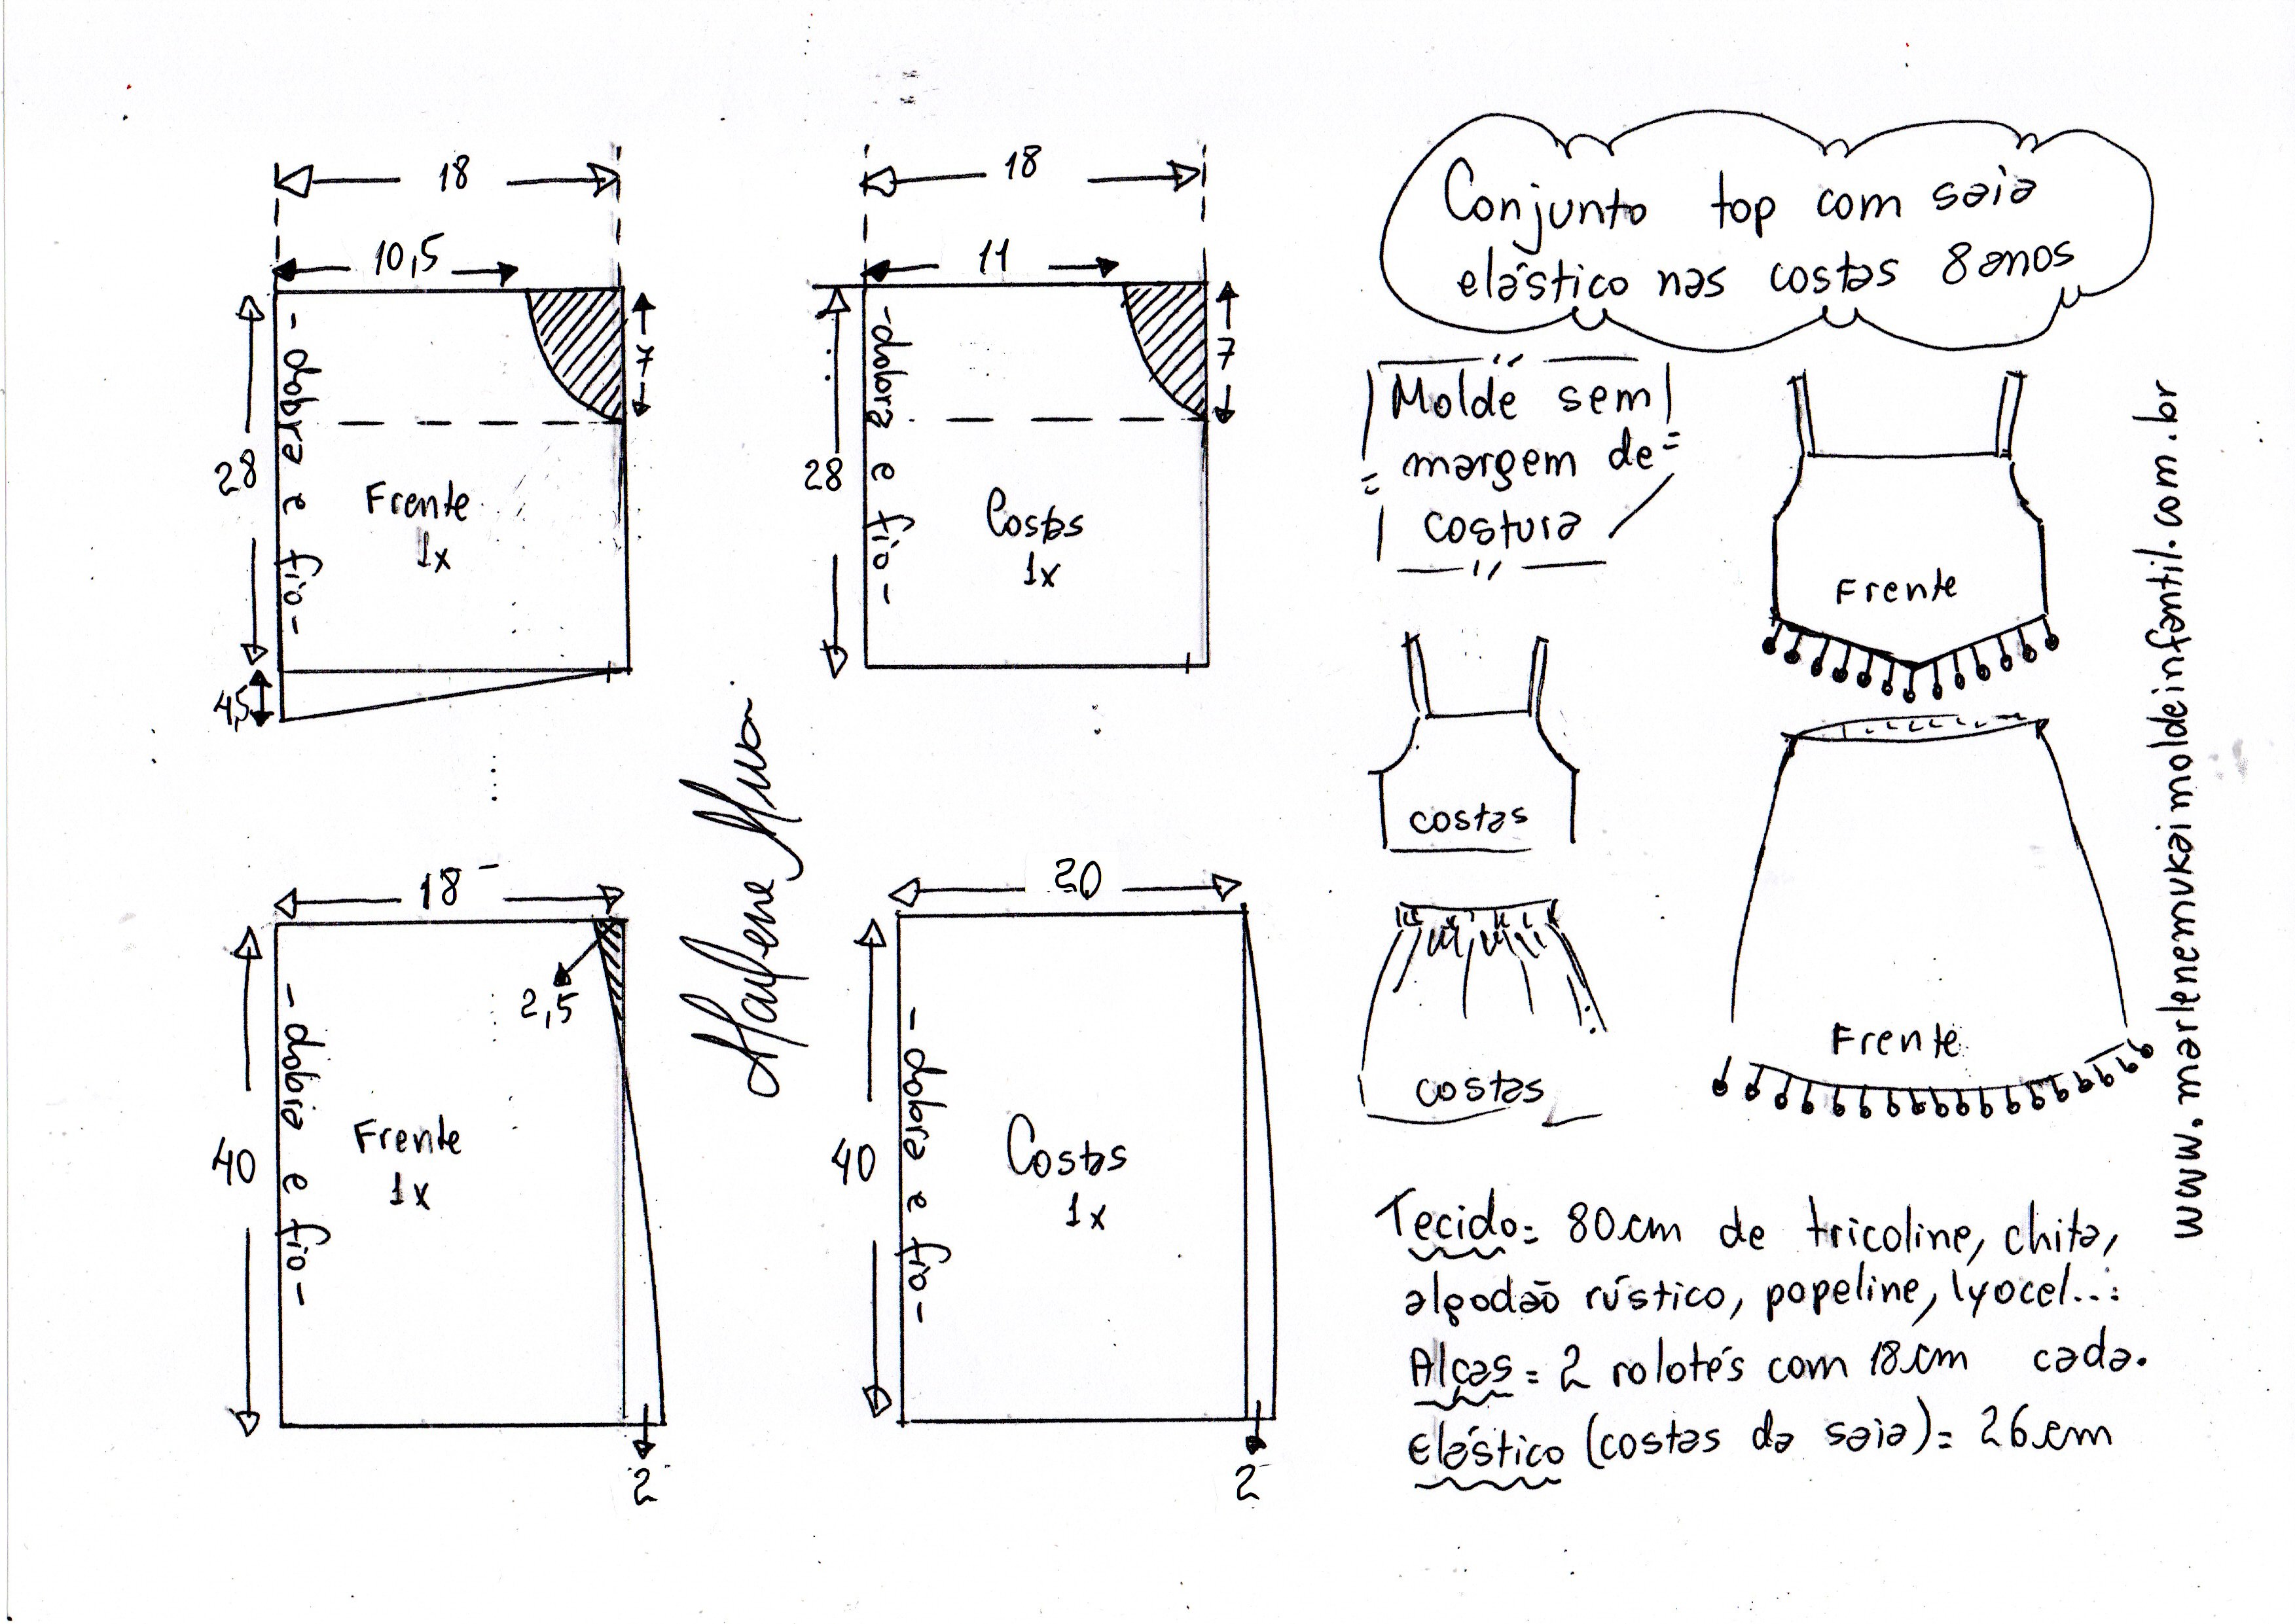 18
10,5
7
28
- dobra e fio -
Frente
1x
4,5
18
11
7
28
- dobra e fio -
Costas
1x
18
2,5
40
- dobra e fio -
Frente
1x
2
20
40
- dobra e fio -
Costas
1x
2
Conjunto top com saia
elástico nas costas 8 anos
Molde sem
margem de
costura
Frente
costas
Frente
costas
Tecido = 80 cm de tricoline, chita,
algodão rústico, popeline, lyocel...
Alças = 2 rolotés com 18 cm cada.
Elástico (costas da saia) = 26 cm
www.marlenemukaimoldeinfantil.com.br